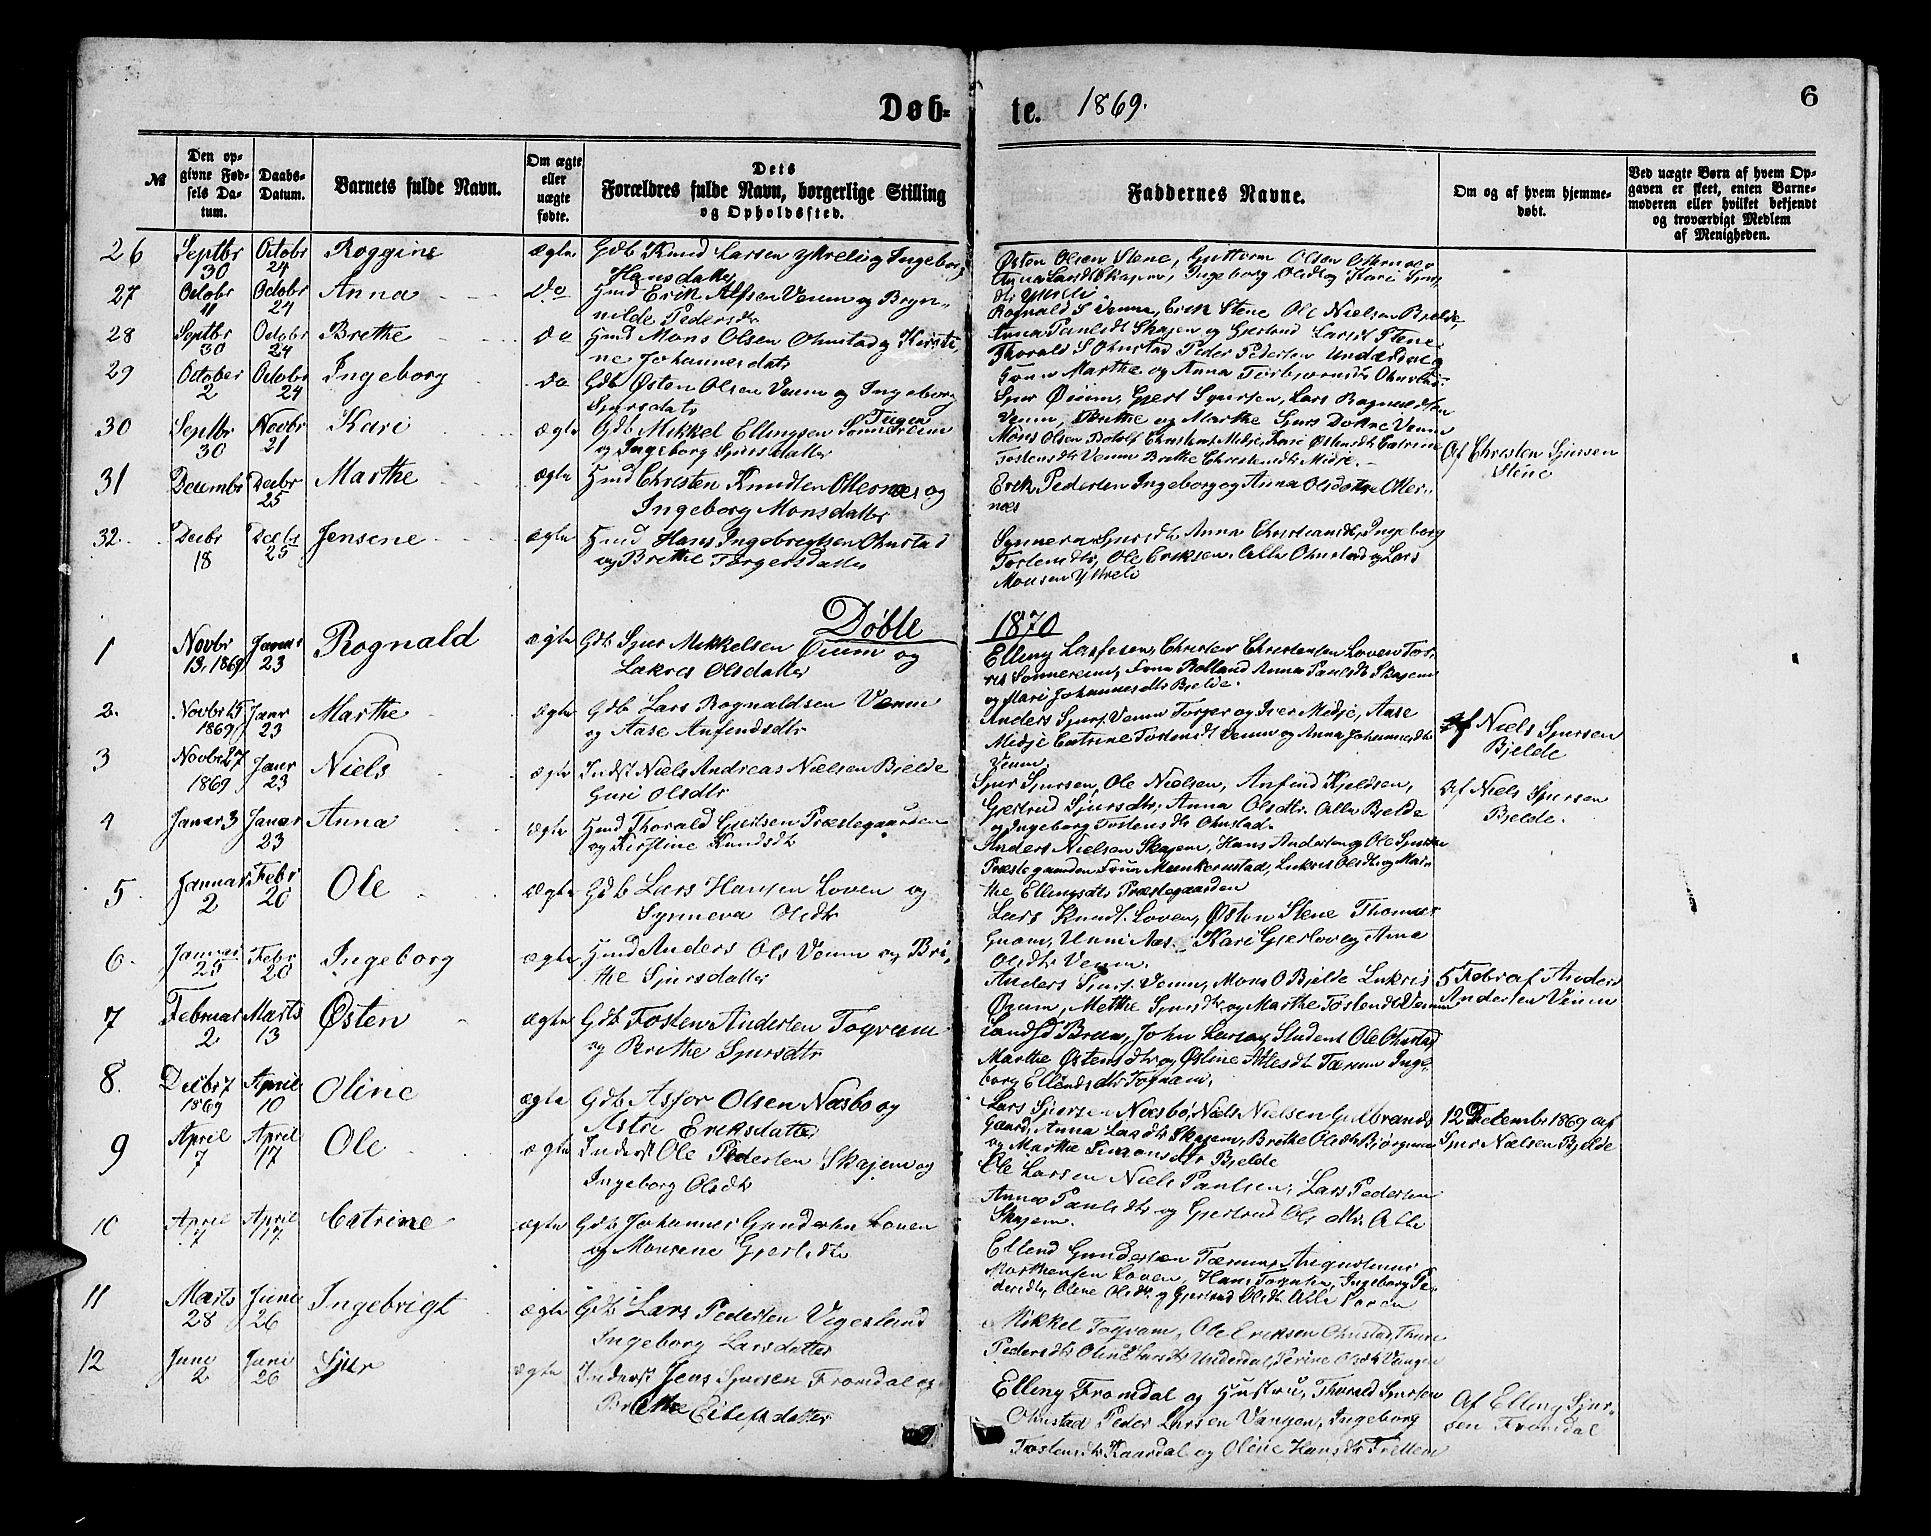 Døb-
te. 1869.
6
№
Den op-
givne Fød-
sels Da-
tum.
Daabs-
Datum.
Barnets fulde Navn.
Om ægte
eller
uægte
fødte.
Dets
Forældres fulde Navn, borgerlige Stilling
og Opholdssted.
Faddernes Navne.
Om og af hvem hjemme-
døbt.
Ved uægte Børn af hvem Op-
gaven er skeet, enten Barne-
moderen eller hvilket bekjendt
og troværdigt Medlem
af Menigheden.
26 Septbr 30 Octobr 24 Roggine ægte Gdb Knud Larsen Ytreli og Ingeborg
Hansdatter
Østen Olsen Stene, Guttorm Olsen Otternes
Anna Larsdt Skajem, Ingeborg Olsdt og Kari
dtr Ytreli.
27 Octobr 11 Octobr 24 Anna do Hmd Erik Alfsen Venm og Bryn-
nilde Pedersdtr
Rognald S Venm, Erik Stene Ole Nielsen Bjelde,
Anna Paulsdt Skajem og Gjertrud Larsdt Stene
28 Septbr 30 Octobr 24 Brethe do Hmd Mons Olsen Ohnstad og Kirsti-
ne Johannesdatr
Thorald S Ohnstad Peder Pedersen Undredal og
Marthe og Anna Torbjørnsdtr Ohnstad
29 October 2 Octobr 24 Ingeborg do Gdb Østen Olsen Venm og Ingeborg
Sjursdatr
Sjur Øium, Gjert Sjursen, Lars Rognaldsen
Venm, Brethe og Marthe Sjurs Døtre Venm
30 Septbr 30 Novbr 21 Kari ægte Gdb Mikkel Ellingsen Sønnereim
og Ingeborg Sjursdatter
Mons Olsen Christens Midje, Kari Østensdt Catrine
Tostensdtr Venm Brethe Christensdtr Midje.
Af Christen Sjursen
Stene
31 Decembr Decbr 25 Marthe ægte Hmd Christen Knudsen Otternes og
Ingeborg Monsdatter
Erik Pedersen Ingeborg og Anna Olsdøtre Otter-
nes
32. Decbr 18 Decbr 25 Jensene ægte Hmd Hans Ingebregtsen Ohnstad
og Brethe Torgersdatter
Synneva Sjursdtr Anna Christiansdtr, Ingeborg
Tostensdtr, Ole Eriksen, Alle Ohnstad og Lars
Monsen Ytreli
Døbte 1870
1 Novbr 13, 1869 Januar 23 Rognald ægte Gdb Sjur Mikkelsen Øium og
Lukris Olsdatter
Elling Lassesen, Christen Christensen Loven
Sønnereim, Anna Paulsdtr Skajem
og Mari Johannesdtr Bjelde.
2. Novbr 15 1869 Janr 23 Marthe ægte Gdb Lars Rognaldsen Venm
og Aase Anfindsdtr
Anders Sjurs. Venm Torger og Iver Midje, Aase
Midje Catrine Tostensdt Venm og Anna Johannesdtr
Venm
Af Niels Sjursen
Bjelde
3 Novbr 27 1869 Janr 23 Niels ægte Indst Niels Andreas Nielsen Bjelde
Guri Olsdtr
Sjur Sjursen, Ole Nielsen, Anfind Kjeldsen,
Gjertrud Sjursdtr, Anna Olsdtr. Alle Bjelde
og Ingeborg Tostensdtr Ohnstad.
Af Niels Sjursen
Bjelde.
4 Januar 3 Januar 23 Anna ægte Hmd Thorald Gjertsen Præstegaarden
og Kirstine Knudsdtr
Anders Nielsen Skajem, Hans Andersen og Ole Sjursen
Præstegaarden Frue Munkerustad, Lukris Olsdtr og Mar-
the Ellingsdtr Præstegaarden
5 Januar 2 Febr 20 Ole ægte Gdb Lars Hansen Loven og
Synneva Olsdtr
Lars Knuds. Loven, Østen Stene Thomas
Gnam, Unni Aas. Kari Gjerløv og Anna
Olsdtr Venm.
6. Januar 25 Febr 20 Ingeborg ægte Hmd Anders Ols Venm og Bri-
the Sjursdatter
Anders Sjurs. Venm, Mons O Bjelde Lukris
Øyum, Methe Sjursdtr og Marthe Tostensdt Venm
5 Febr af Anders
Andersen Venm
7 Februar 2 Marts 13 Østen ægte Gdb Tosten Andersen Fognam
og Brithe Sjursdtr
Landhd Brun, John Larsen, Student Ole Ohnstad,
Marthe Østensdtr og Østine Attesdt Tærum Inge-
borg Ellendsdtr Fognam.
8. Decbr 7 1869 April 10 Oline ægte Gdb Asfor Olsen Næsbø og
Astri Eriksdatter
Lars Sjursen Næsbø, Niels Nielsen Gulbrands
Gaard, Anna Larsdtr Skajem, Brethe Olsdtr
og Marthe Simonsdtr Bjelde
12 Decembr 1869 af
Sjur Nielsen Bjelde
9 April 7 April 17 Ole ægte Inderst Ole Pedersen Skajem og
Ingeborg Olsdtr
Ole Larsen Niels Paulsen, Lars Pedersen
Anna Paulsdtr og Gjertrud Ols dtr. Alle
Skajem.
10 April 7 April 17 Catrine ægte Gdb Johannes Gundersen Loven
og Monsine Gjertsdtr
Ellend Gundersen Tærum, Augustinus
Morthensen Loven, Hans Fogntun, Ingeborg Pe-
dersdtr, Oline Olsdtr og Gjertrud Olsdtr. Alle Loven
11 Marts 28 Juni 26 Ingebrigt ægte Gdb Lars Pedersen Vigesland
Ingeborg Larsdatter
Mikkel Fognam, Ole Eriksen Ohnstad, Thuri
Pedersdtr Oline Larsdtr Underdal, Perine Olsdtr Vangen
12 Juni 2 Juni 26 Sjur ægte Inderst Jens Sjursen Fromdal og
Brethe Eilefsdatter
Elling Fromdal og Hustru, Thorald Sjursen
Ohnstad Peder Larsen Vangen, Ingeborg
Tostensdtr Kaardal og Oline Hansdtr Fretten
Af Elling Sjur-
sen Fromdal